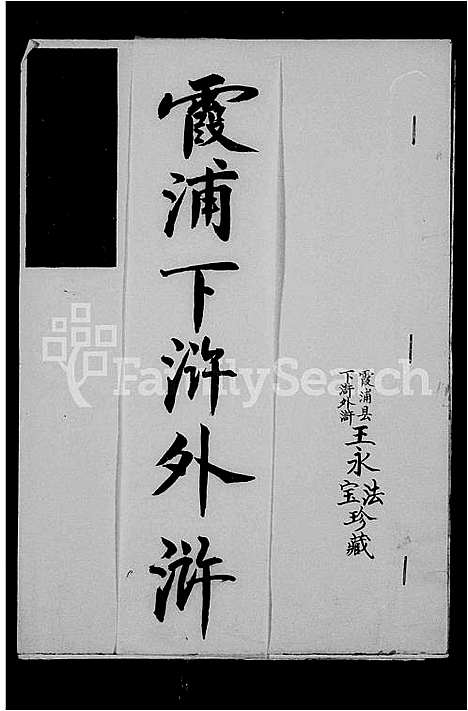 霞浦县
下浒外浒
王永法
宝珍藏
霞浦下浒外浒
FamilySearch